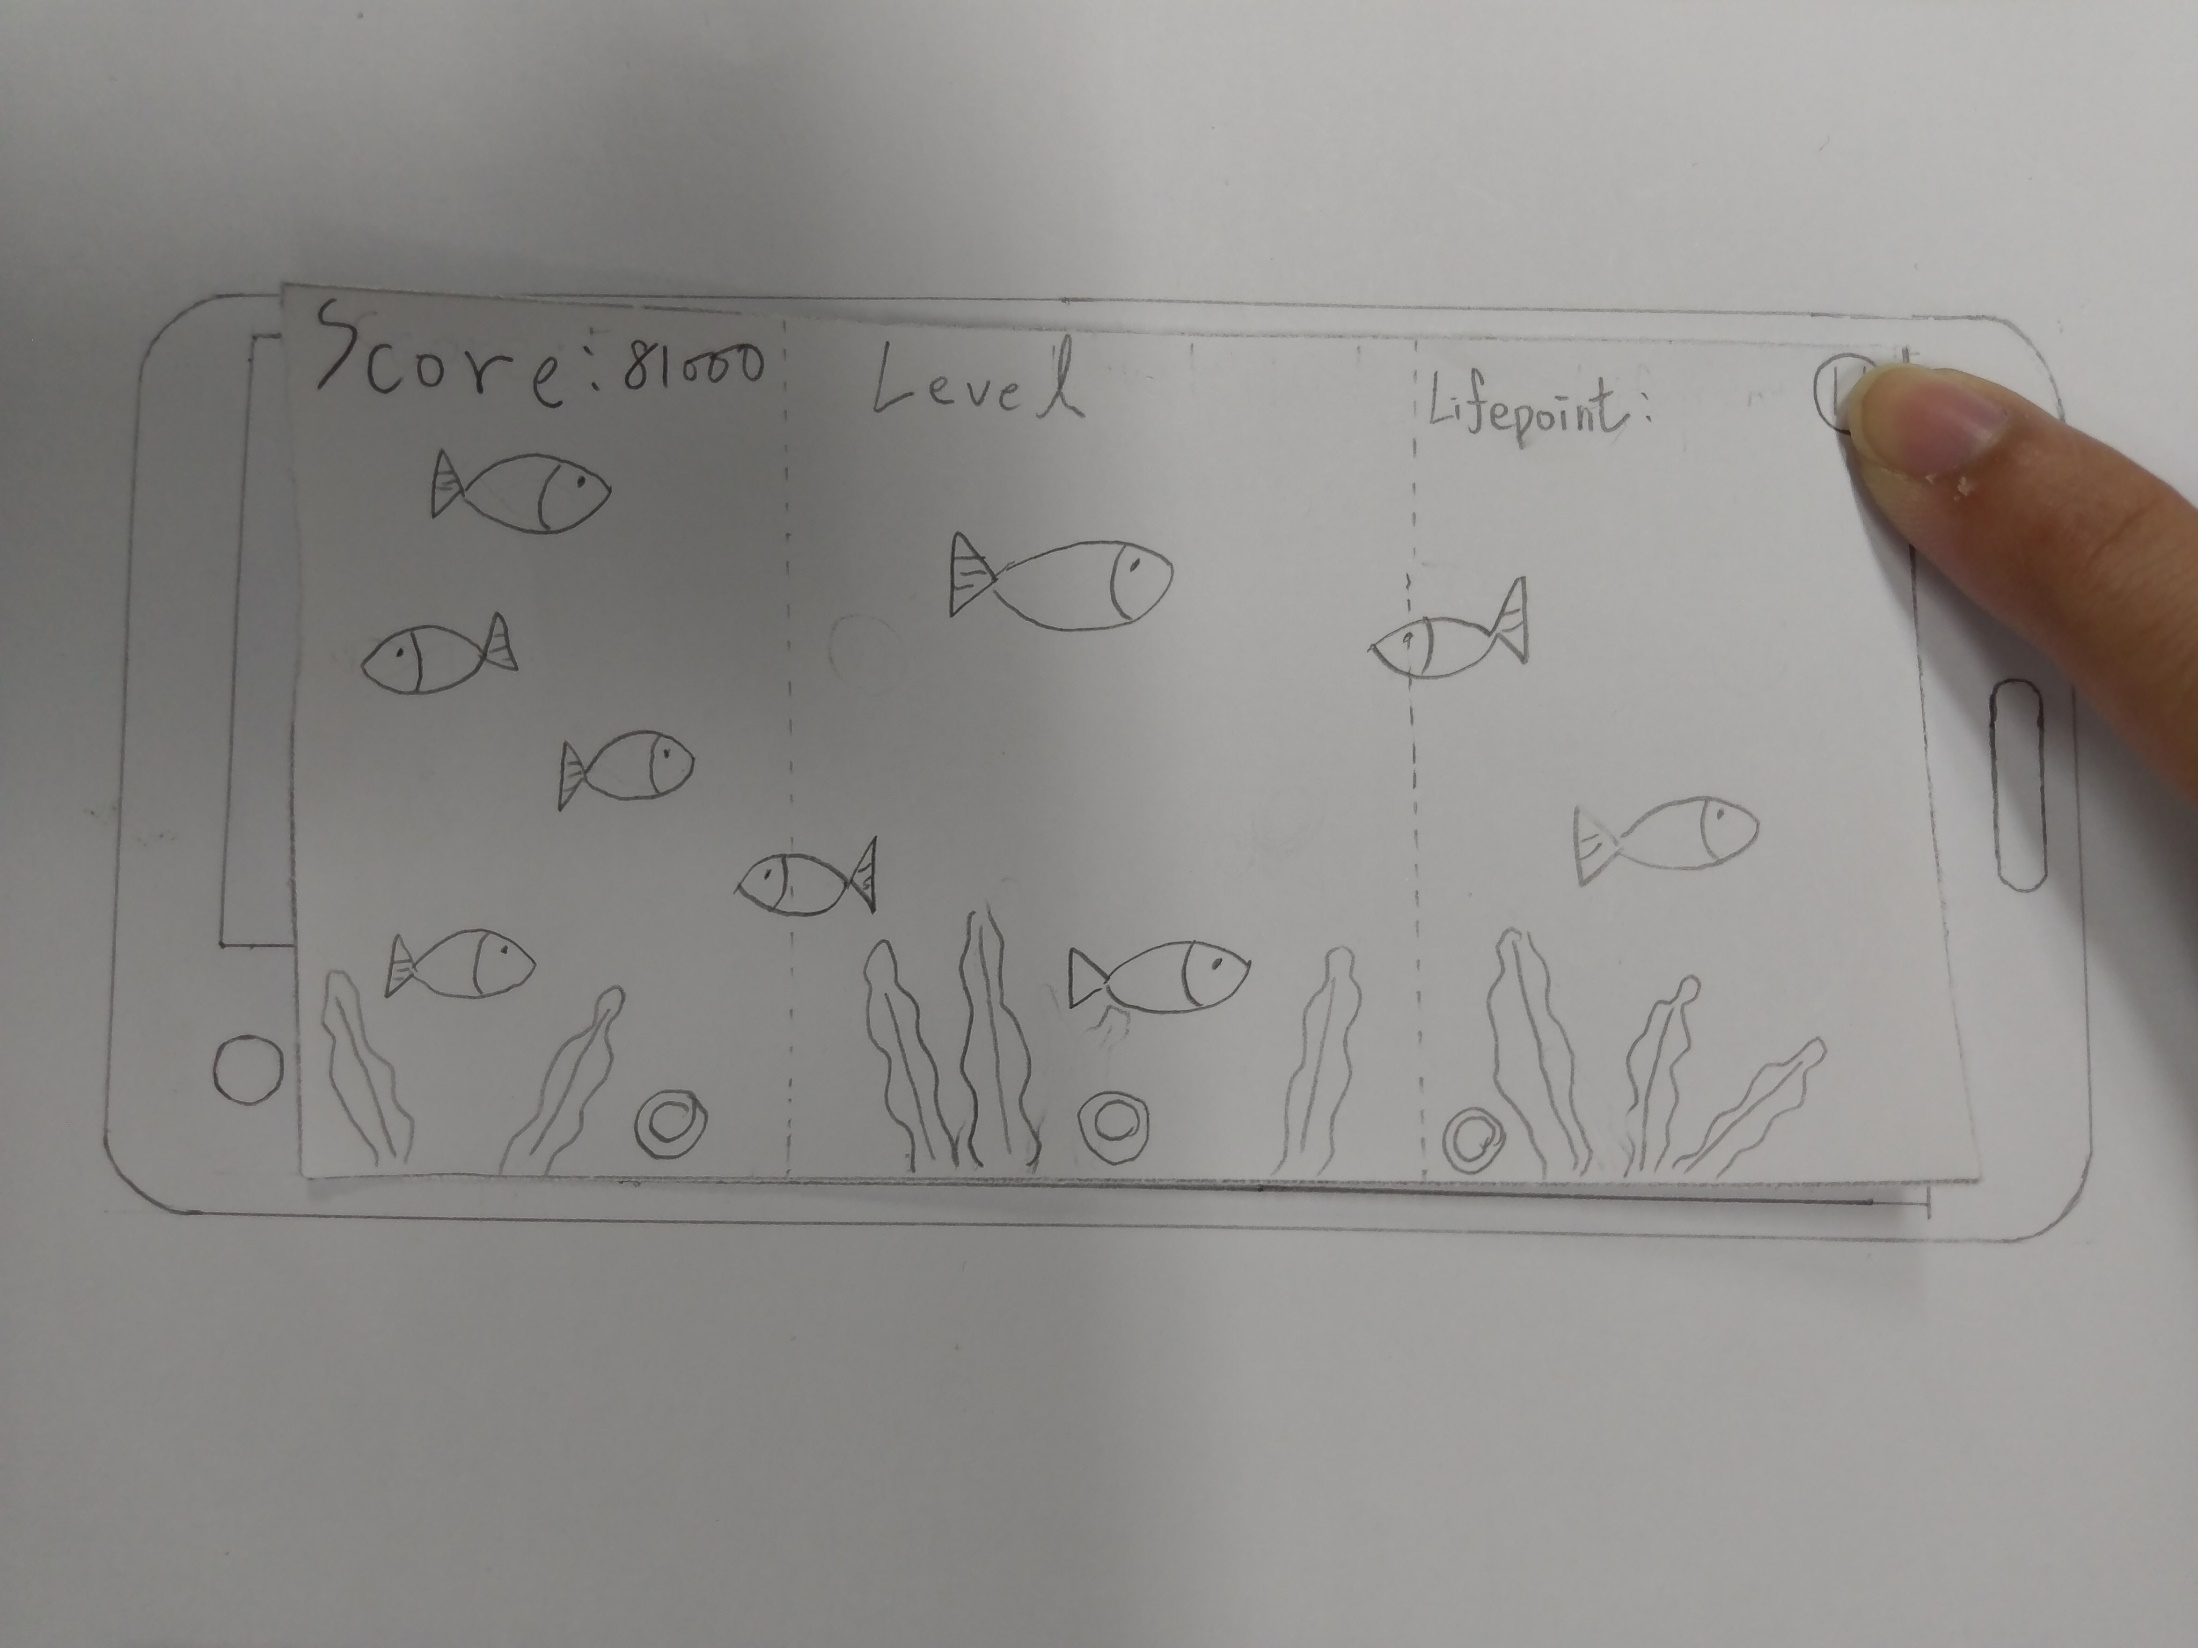 Score: 81000
Level
Lifepoint: